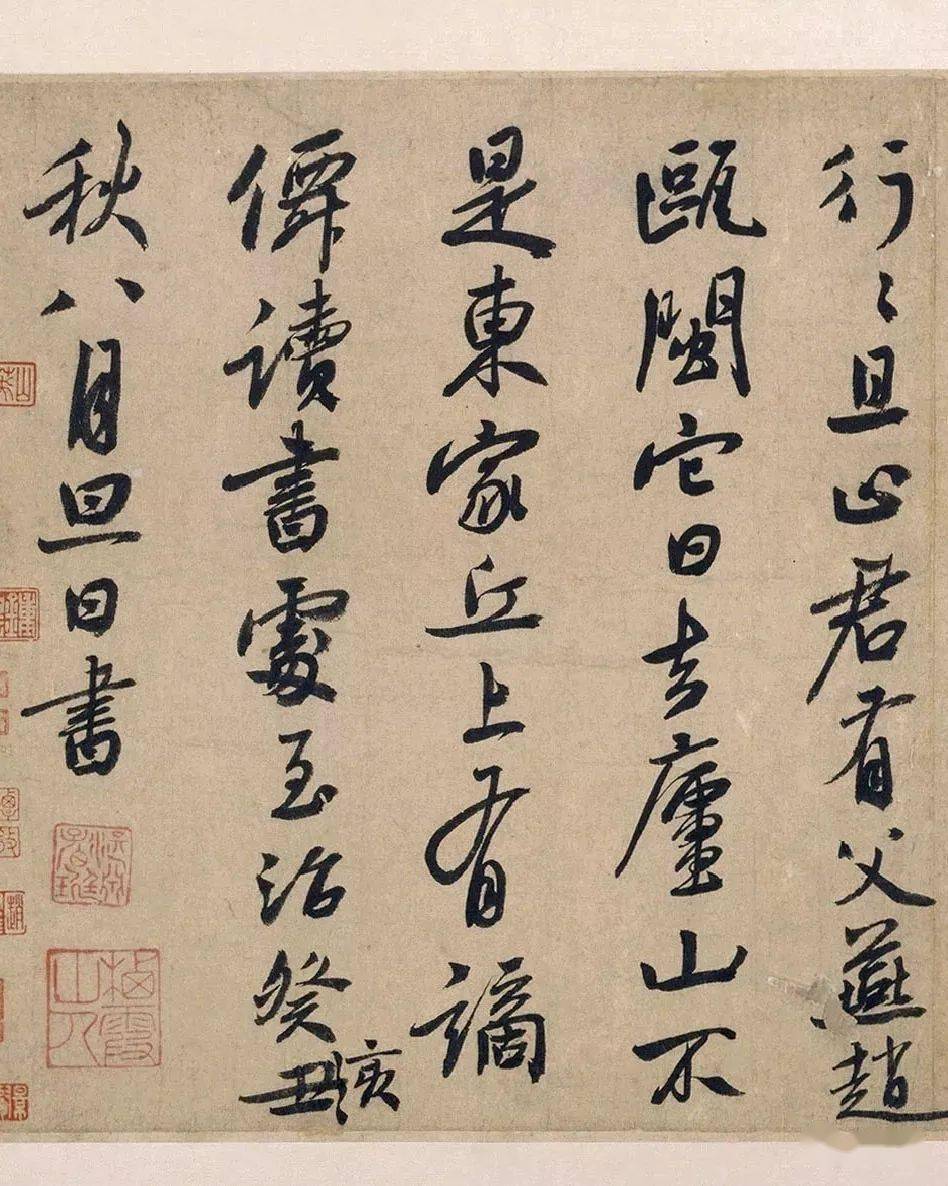 行〻且止君有父燕趙
甌閩它日去廬山不
是東家丘上有謫
僊讀書處至治癸丑亥
秋八月旦日書